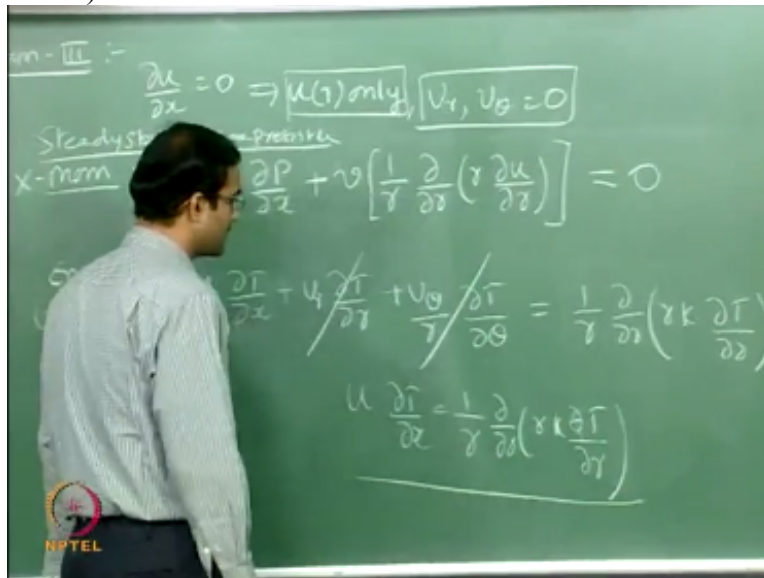 III :-
∂u/∂x = 0 ⇒ u(r) only, Vr, Vθ = 0
Steady
x-mom ∂P/∂x + ν[1/r ∂/∂r (r ∂u/∂r)] = 0
∂T/∂x + Vr ∂T/∂r + Vθ/r ∂T/∂θ = 1/r ∂/∂r (r k ∂T/∂r)
u ∂T/∂x = 1/r ∂/∂r (r k ∂T/∂r)
NPTEL